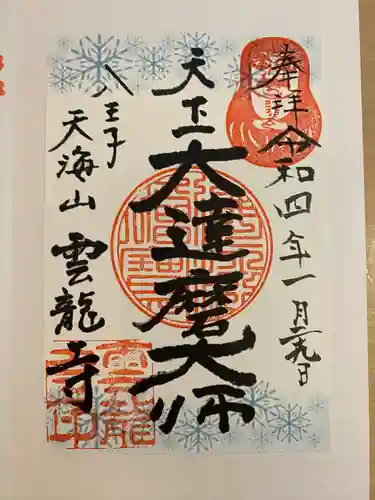 奉拝
令和四年一月二九日
天下
大達磨大師
八王子
天海山
雲龍寺